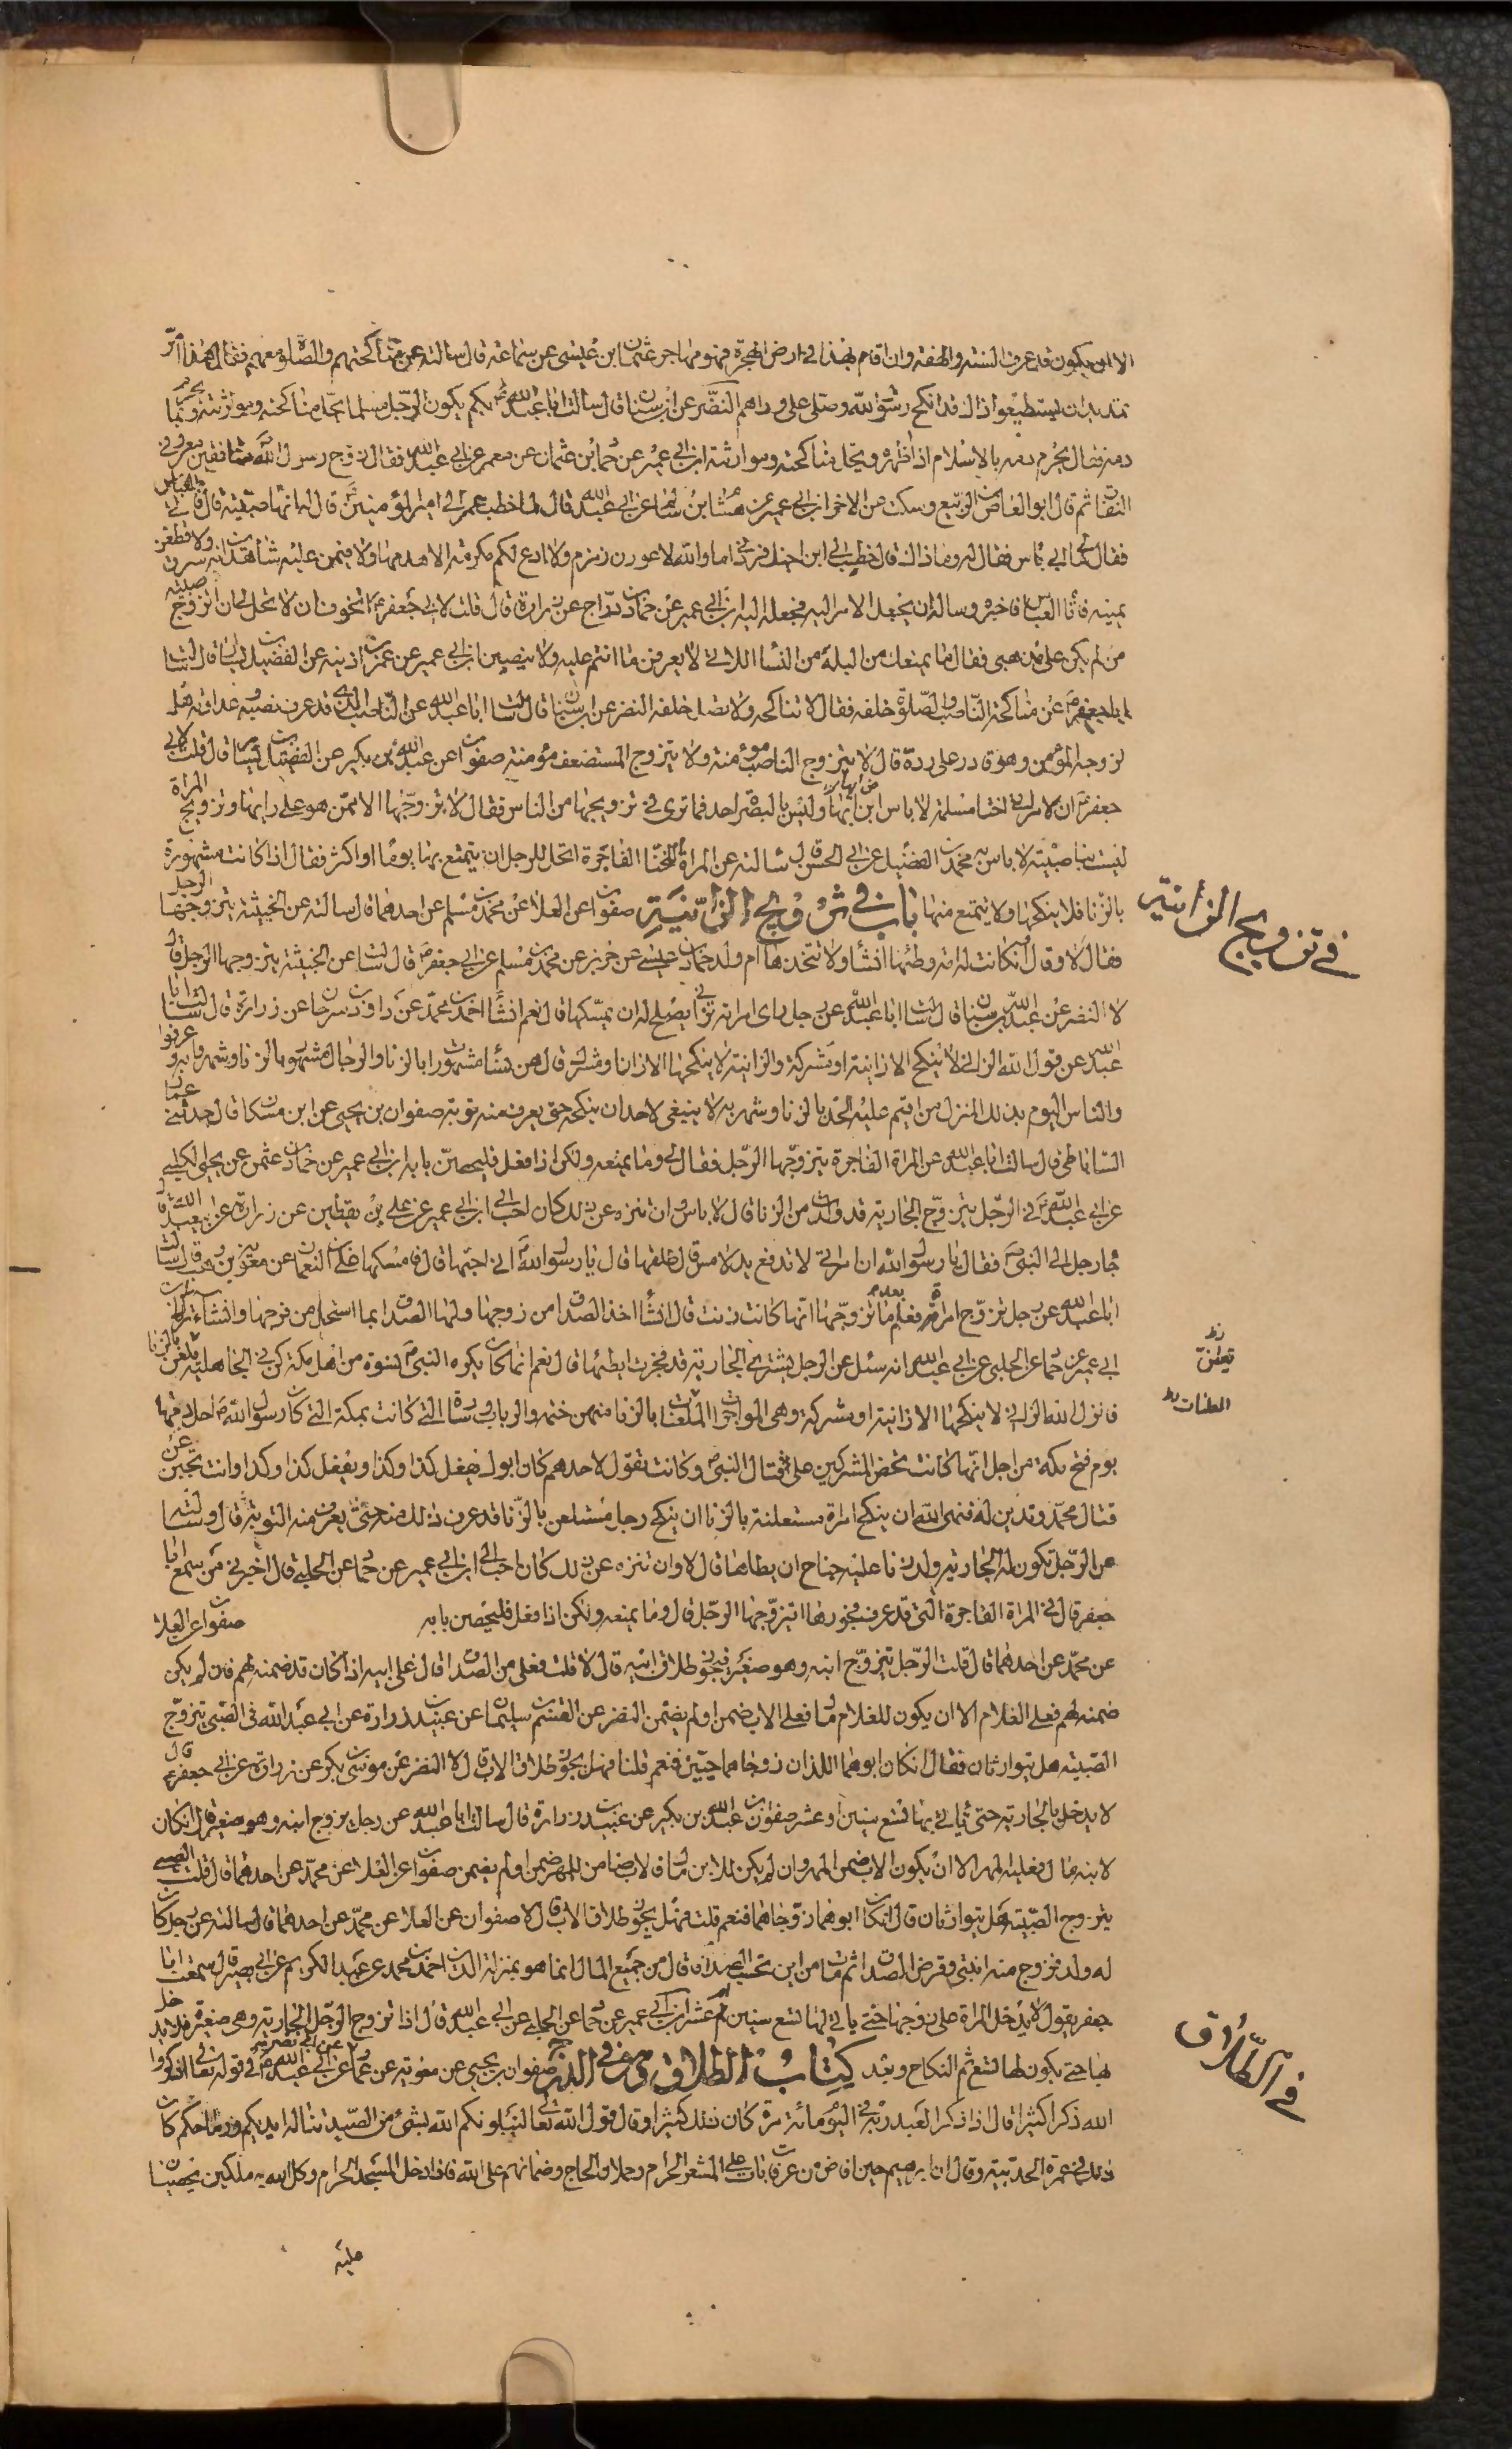 الا ان يكون قد عرف السنة والخفة وان اقام بهذا في ارض الهجرة فهو مهاجر عثمان ابن عيسى عن سماعة قال سالته عن مناكحتهم والصلوة معهم فقال هذا امر
تمديدان يستطيعوا ذلك قد انكح رسول الله وصلى علي وراهم النضر عن ابن سنان قال سالت ابا عبد الله بكم يكون الرجل مسلما تحل مناكحته وموارثته وبما يحرم
دمه فقال يحرم دمه بالاسلام اذا ظهر ويحل مناكحته وموارثته ابن ابي عمير عن حماد بن عثمان عن معمر عن ابي عبد الله فقال زوج رسول الله منافقين معروفي
النفاق ثم قال ابو العاص بن الربيع وسكت عن الاخر ابن ابي عمير عن هشام بن سالم عن ابي عبد الله قال لما خطب عمر الى امير المؤمنين قال له انها صبية قال فاتى العباس
فقال ما لي باس فقال له وما ذاك قال خطبت الى ابن اخيك فردني اما والله لاعورن زمزم ولا ادع لكم مكرمة الا هدمتها ولاقيمن عليه شاهدين انه سرق ولاقطعن
يمينه فاتاه العباس فاخبره وساله ان يجعل الامر اليه فجعله اليه ابن ابي عمير عن جميل بن دراج عن زرارة قال قلت لابي جعفر اتخوف ان لا تحل لي ان اتزوج صبية
من لم يكن على مذهبي فقال ما يمنعك من البله من النسا اللاتي لا يعرفن ما انتم عليه ولا ينصبن ابن ابي عمير عن عمر بن اذينه عن الفضيل بن يسار قال سالت
ابا جعفر عن مناكحة الناصب والصلوة خلفه فقال لا تناكحه ولا تصل خلفه النضر عن ابن سنان قال سالت ابا عبد الله عن الناصب الذي قد عرف نصبه وعداوته هل
نزوجه المؤمن وهو قادر على رده قال لا يتزوج الناصب مؤمنة ولا يتزوج المستضعف مؤمنة صفوان عن عبد الله بن بكير عن الفضيل بن يسار قال قلت لابي
جعفر ان لامراتي اختا مسلمة لا باس برايها وليس بالبصرة احد فما ترى في تزويجها من الناس فقال لا تزوجها الا ممن هو على رايها وتزويج المراة
ليست بناصبية لا باس به محمد بن الفضيل عن ابي الحسن قال سالته عن المراة الحسنا الفاجرة اتحل للرجل ان يتمتع بها يوما او اكثر فقال اذا كانت مشهورة
بالزنا فلا ينكحها ولا يتمتع منها باب في تزويج الزانية صفوان عن العلا عن محمد بن مسلم عن احدهما قال سالته عن الخبيثة يتزوجها الرجل
فقال لا وقال ان كانت له امة وطئها ان شا ولا تتخذها ام ولد حماد بن عيسى عن حريز عن محمد بن مسلم عن ابي جعفر قال سالت عن الخبيثة يتزوجها الرجل قال
لا النضر عن عبد الله بن سنان قال سالت ابا عبد الله عن رجل راى امراته تزني ايصلح له ان يمسكها قال نعم ان شا احمد بن محمد عن داود بن سرحان عن زرارة قال سالت ابا
عبد الله عن قول الله الزاني لا ينكح الا زانية او مشركة والزانية لا ينكحها الا زان او مشرك قال هن نسا مشهورات بالزنا والرجال مشهورون بالزنا وشهروا به وعرفوا
والناس اليوم بذلك المنزل من اقيم عليه الحد بالزنا وشهر به لا ينبغي لاحد ان ينكحه حتى يعرف منه توبته صفوان بن يحيى عن ابن مسكان قال حدثني عمار
الساباطي قال سالت ابا عبد الله عن المراة الفاجرة يتزوجها الرجل فقال لي وما يمنعه ولكن اذا فعل فليحصن بابه ابن ابي عمير عن حماد بن عثمن عن يحيى الحلبي
عن ابي عبد الله في الرجل يتزوج الجارية قد ولدت من الزنا قال لا باس وان تنزه عن ذلك كان احب الي ابن ابي عمير عن علي بن يقطين عن زرارة عن ابي عبد الله قال
جا رجل الى النبي فقال يا رسول الله ان امراتي لا تدفع يد لامس قال طلقها قال يا رسول الله اني احبها قال فامسكها علي بن النعمان عن معوية بن وهب قال سالت
ابا عبد الله عن رجل تزوج امراة فعلم بعد ما تزوجها انها كانت زنت قال ان شا اخذ الصداق من زوجها ولها الصداق بما استحل من فرجها وان شا تركها
ابي عمير عن حماد عن الحلبي عن ابي عبد الله انه سئل عن الرجل يشتري الجارية قد فجرت ايطئها قال نعم انما كان يكره النبي لنسوة من اهل مكة كن في الجاهلية يعلن بالزنا
فانزل الله الزاني لا ينكحها الا زانية او مشركة وهي المواجرات المعلنات بالزنا منهن حنتمة والرباب وسارة التي كانت بمكة التي كان رسول الله احل دمها
يوم فتح مكة من اجل انها كانت تحض المشركين على قتال النبي وكانت تقول لاحدهم كان ابوك يفعل كذا وكذا ويفعل كذا وكذا وانت تجبن عن
قتال محمد وتدين له فنهى الله ان ينكح امراة مستعلنة بالزنا او ان ينكح رجل مستعلن بالزنا قد عرف ذلك منه حتى يعرف منه التوبة قال وسالته
عن الرجل تكون له الجارية ولد زنا عليه جناح ان يطاها قال لا وان تنزه عن ذلك كان احب الي ابن ابي عمير عن حماد عن الحلبي قال اخبرني من سمع ابا
جعفر قال في المراة الفاجرة التي قد عرف فجورها ايتزوجها الرجل قال وما يمنعه ولكن اذا فعل فليحصن بابه صفوان عن العلا
عن محمد عن احدهما قال قلت الرجل يتزوج ابنه وهو صغير فيجوز طلاق ابيه قال لا قلت فعلى من الصداق قال على ابيه اذا كان قد ضمنه لهم فان لم يكن
ضمنه لهم فعلى الغلام الا ان يكون للغلام مال فعلى الاب ضمن او لم يضمن النضر عن القسم بن سليمان عن عبيد بن زرارة عن ابي عبد الله في الصبي يتزوج
الصبية هل يتوارثان فقال ان كان ابوهما اللذان زوجاهما حيين فنعم قلنا فهل يجوز طلاق الاب قال لا النضر عن موسى بن بكر عن زرارة عن ابي جعفر قال
لا يدخل بالجارية حتى ياتي بها تسع سنين او عشر صفوان عن عبد الله بن بكير عن عبيد بن زرارة قال سالت ابا عبد الله عن رجل يزوج ابنه وهو صغير قال ان كان
لابنه مال فعليه المهر الا ان يكون الاب ضمن المهر وان لم يكن للابن مال فالاب ضامن للمهر ضمن او لم يضمن صفوان عن العلا عن محمد عن احدهما قال قلت الصبي
يتزوج الصبية هل يتوارثان قال ان كان ابوهما زوجاهما فنعم قلت فهل يجوز طلاق الاب قال لا صفوان عن العلا عن محمد عن احدهما قال سالته عن رجل كان
له ولد فزوج منهم اثنين وفرض الصداق ثم مات من اين يحسب الصداق قال من جميع المال انما هو بمنزلة الدين احمد بن محمد عن عبد الكريم عن ابي بصير قال سمعت ابا
جعفر يقول لا يدخل المراة على زوجها حتى ياتي لها تسع سنين او عشر ابن ابي عمير عن حماد عن الحلبي عن ابي عبد الله قال اذا تزوج الرجل الجارية وهي صغيرة فلا يدخل
بها حتى يكون لها تسع تم النكاح وبعد كتاب الطلاق صفوان بن يحيى عن معوية بن عمار عن ابي عبد الله في قوله تعالى اذكروا
الله ذكرا كثيرا قال اذا ذكر العبد ربه في اليوم مائة مرة كان ذلك كثيرا وقال قول الله تعالى ليبلونكم الله بشئ من الصيد تناله ايديكم ورماحكم كان
ذلك في عمرة الحديبية وقال ان ابرهيم حين افاض من عرفات بات على المشعر الحرام وحملان الحاج وضمانهم على الله فاذا دخل المسجد الحرام وكل الله به ملكين يحصيان
عليه
في تزويج الزانية
يعلن
المعلنات
في الطلاق